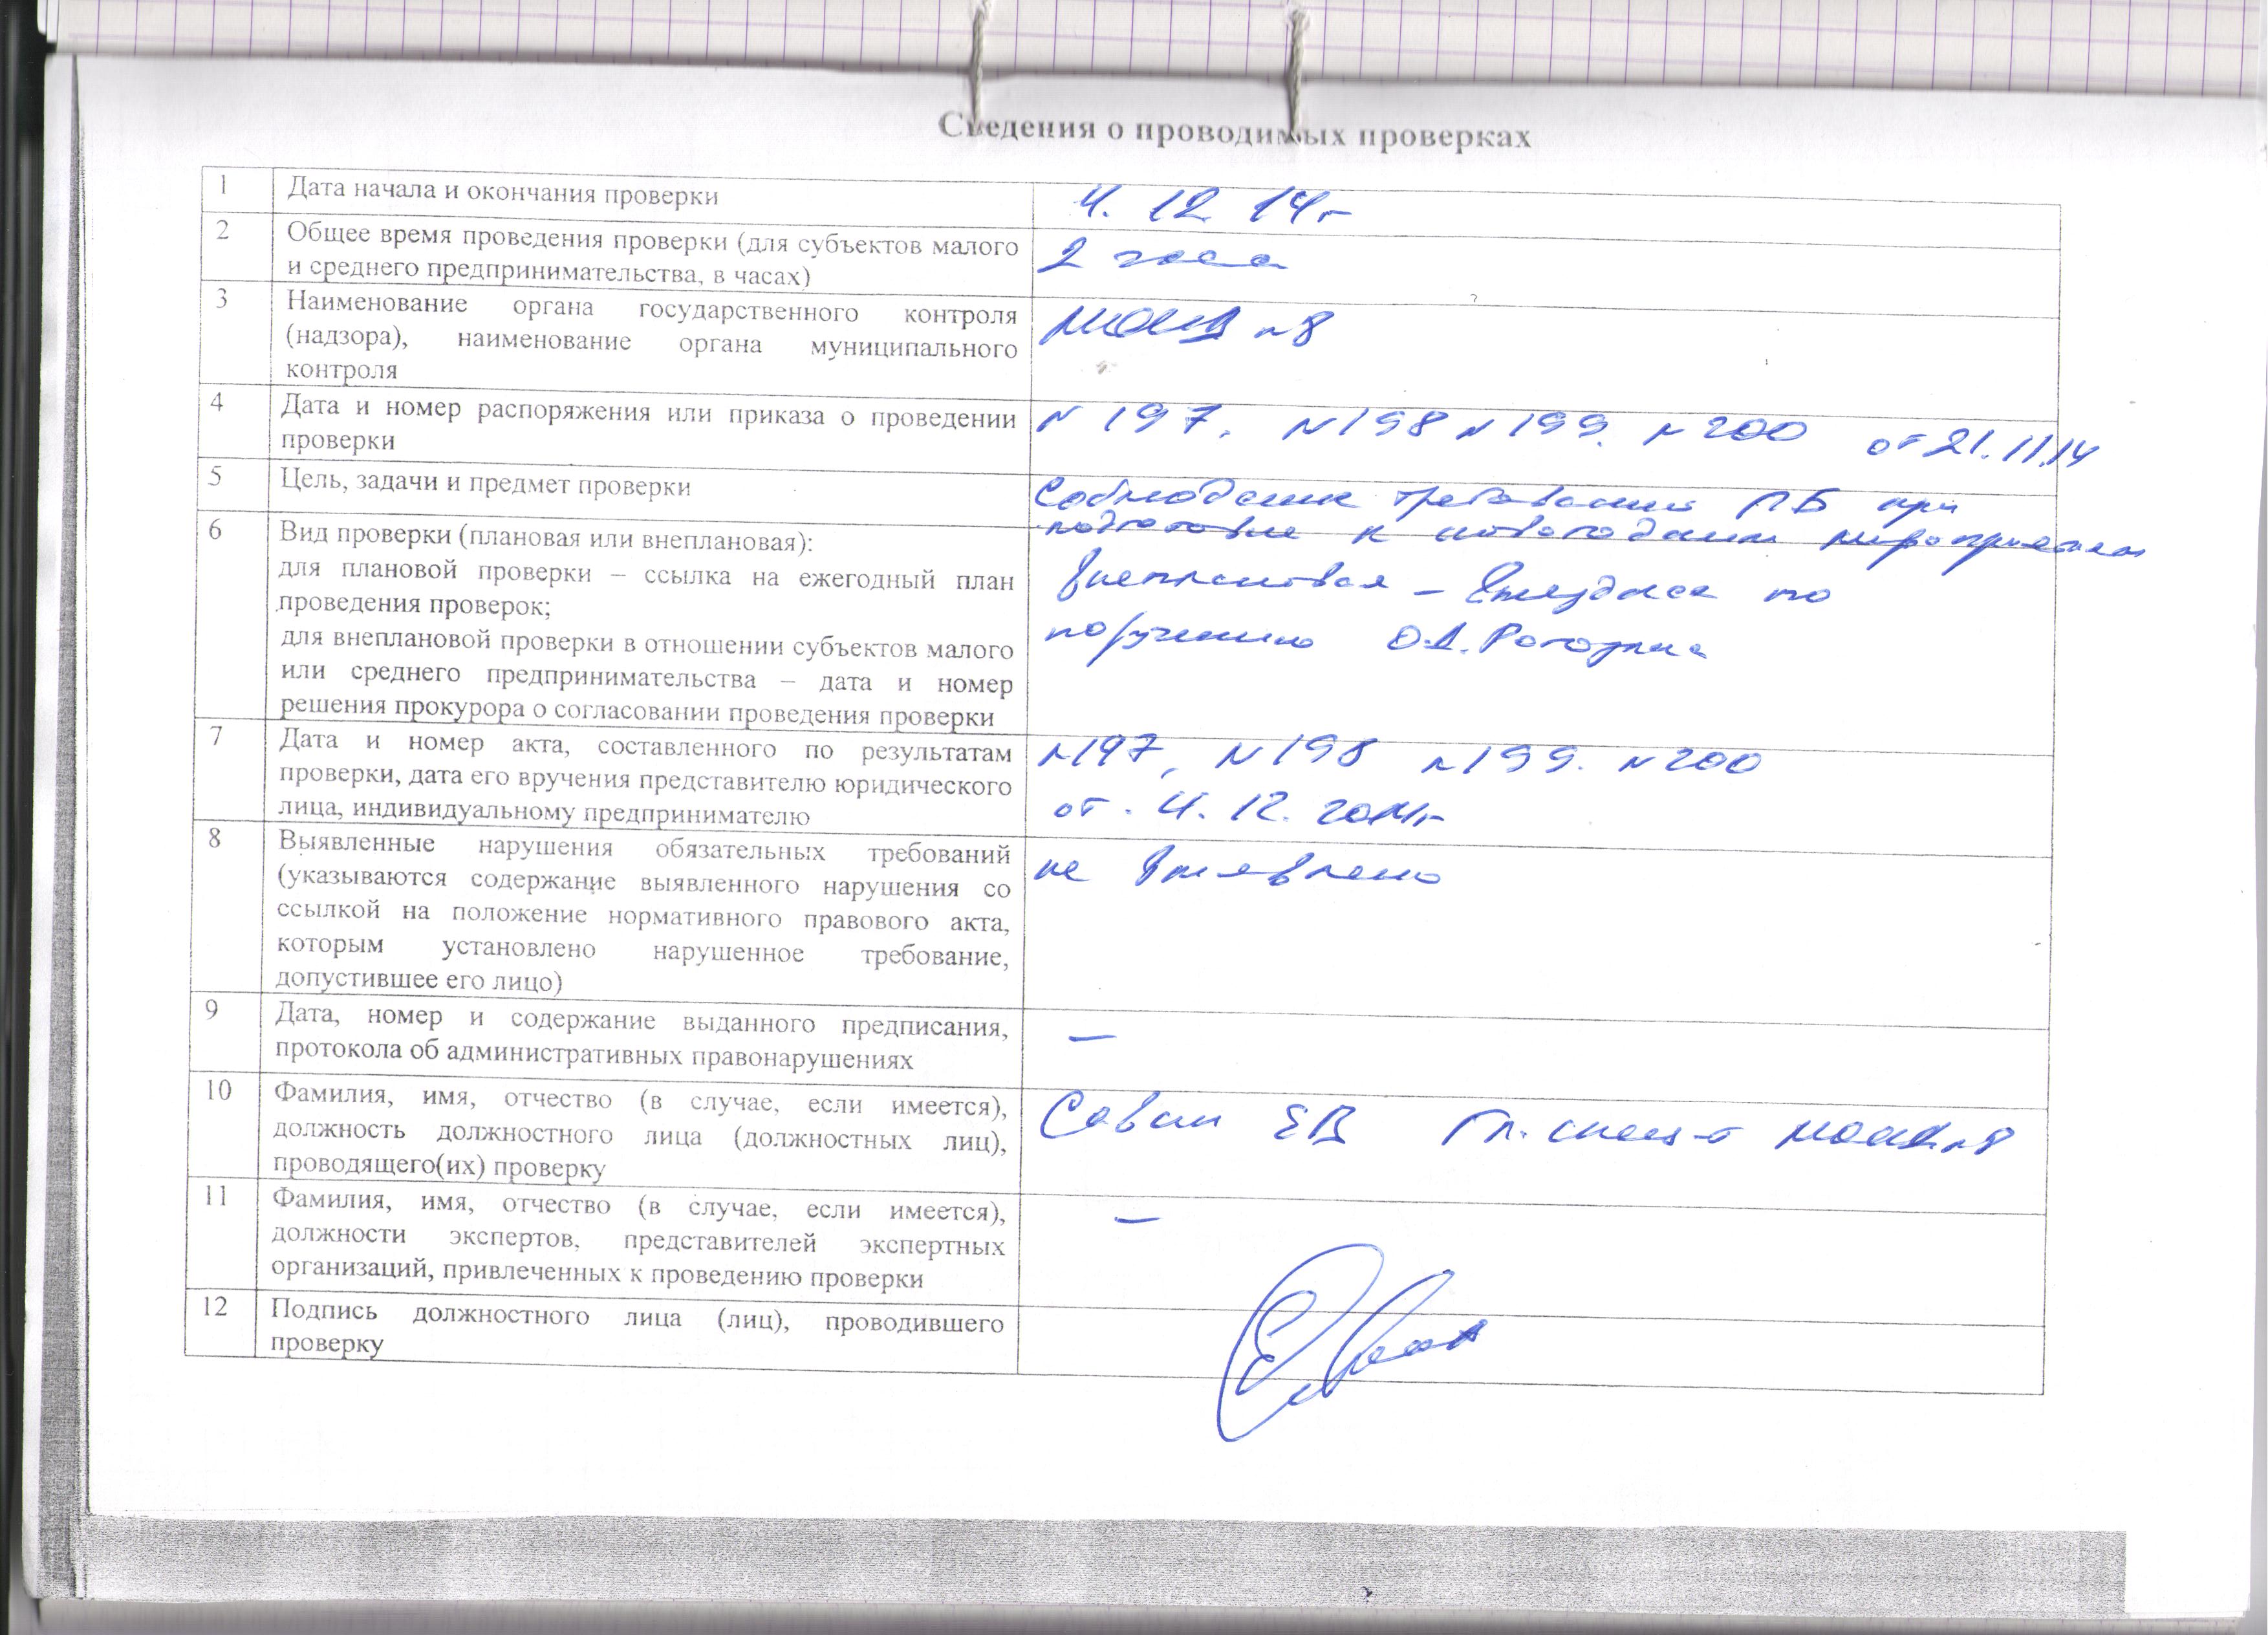 Сведения о проводимых проверках
1 Дата начала и окончания проверки 4. 12. 14г
2 Общее время проведения проверки (для субъектов малого 2 часа
и среднего предпринимательства, в часах)
3 Наименование органа государственного контроля
(надзора), наименование органа муниципального №8
контроля
4 Дата и номер распоряжения или приказа о проведении N 197, N198 N199. N200 от 21.11.14
проверки
5 Цель, задачи и предмет проверки Соблюдение требований ПБ при
подготовке к новогодним мероприятиям
6 Вид проверки (плановая или внеплановая):
для плановой проверки – ссылка на ежегодный план Внеплановая – Выездная по
проведения проверок;
для внеплановой проверки в отношении субъектов малого поручению Рогозина
или среднего предпринимательства – дата и номер
решения прокурора о согласовании проведения проверки
7 Дата и номер акта, составленного по результатам N197, N198 N199. N200
проверки, дата его вручения представителю юридического
лица, индивидуальному предпринимателю от. 4. 12. 2014г
8 Выявленные нарушения обязательных требований
(указываются содержание выявленного нарушения со не выявлено
ссылкой на положение нормативного правового акта,
которым установлено нарушенное требование,
допустившее его лицо)
9 Дата, номер и содержание выданного предписания, —
протокола об административных правонарушениях
10 Фамилия, имя, отчество (в случае, если имеется),
должность должностного лица (должностных лиц), Савин ЕВ Гл. спец-т
проводящего(их) проверку
11 Фамилия, имя, отчество (в случае, если имеется), —
должности экспертов, представителей экспертных
организаций, привлеченных к проведению проверки
12 Подпись должностного лица (лиц), проводившего
проверку